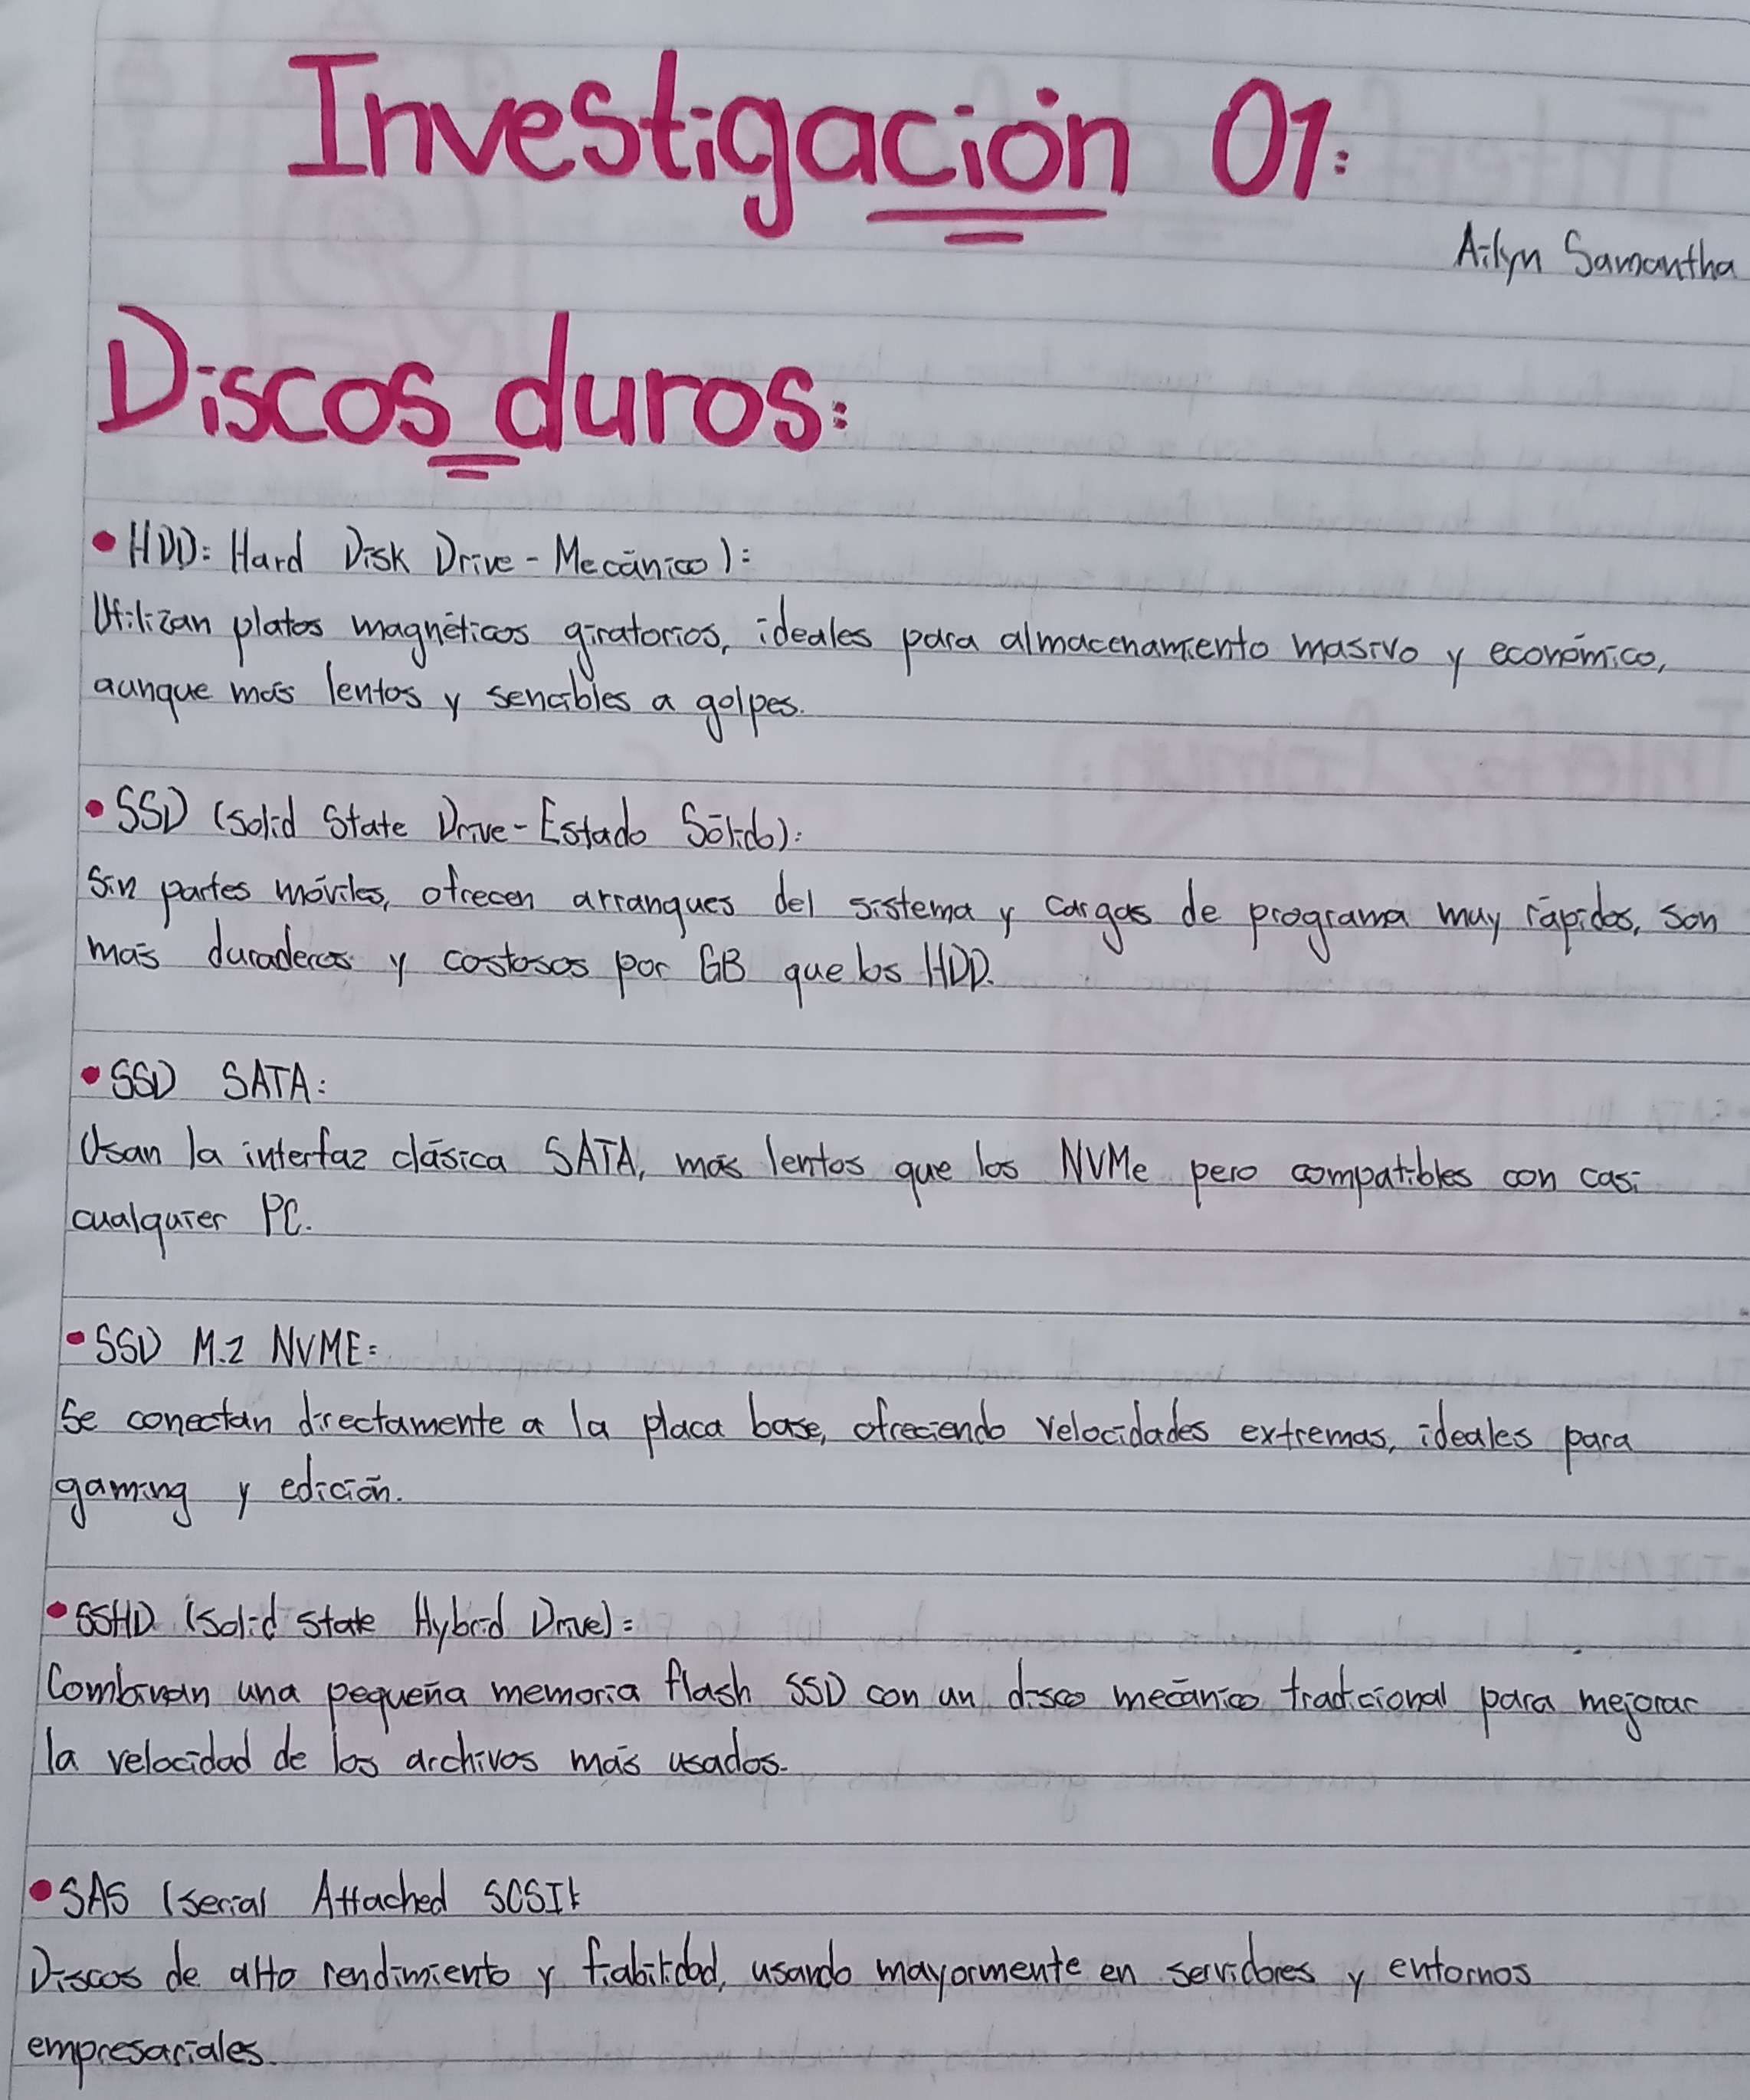 Investigación 01:
Ailyn Samantha
Discos duros:
• HDD: Hard Disk Drive - Mecánico):
Utilizan platos magnéticos giratorios, ideales para almacenamiento masivo y económico,
aunque más lentos y sensibles a golpes.
• SSD (Solid State Drive - Estado Sólido):
Sin partes móviles, ofrecen arranques del sistema y cargas de programa muy rápidos, son
más duraderos y costosos por GB que los HDD.
• SSD SATA:
Usan la interfaz clásica SATA, más lentos que los NVMe pero compatibles con casi
cualquier PC.
• SSD M.2 NVME:
Se conectan directamente a la placa base, ofreciendo velocidades extremas, ideales para
gaming y edición.
• SSHD (Solid State Hybrid Drive):
Combinan una pequeña memoria flash SSD con un disco mecánico tradicional para mejorar
la velocidad de los archivos más usados.
• SAS (Serial Attached SCSI):
Discos de alto rendimiento y fiabilidad, usando mayormente en servidores y entornos
empresariales.